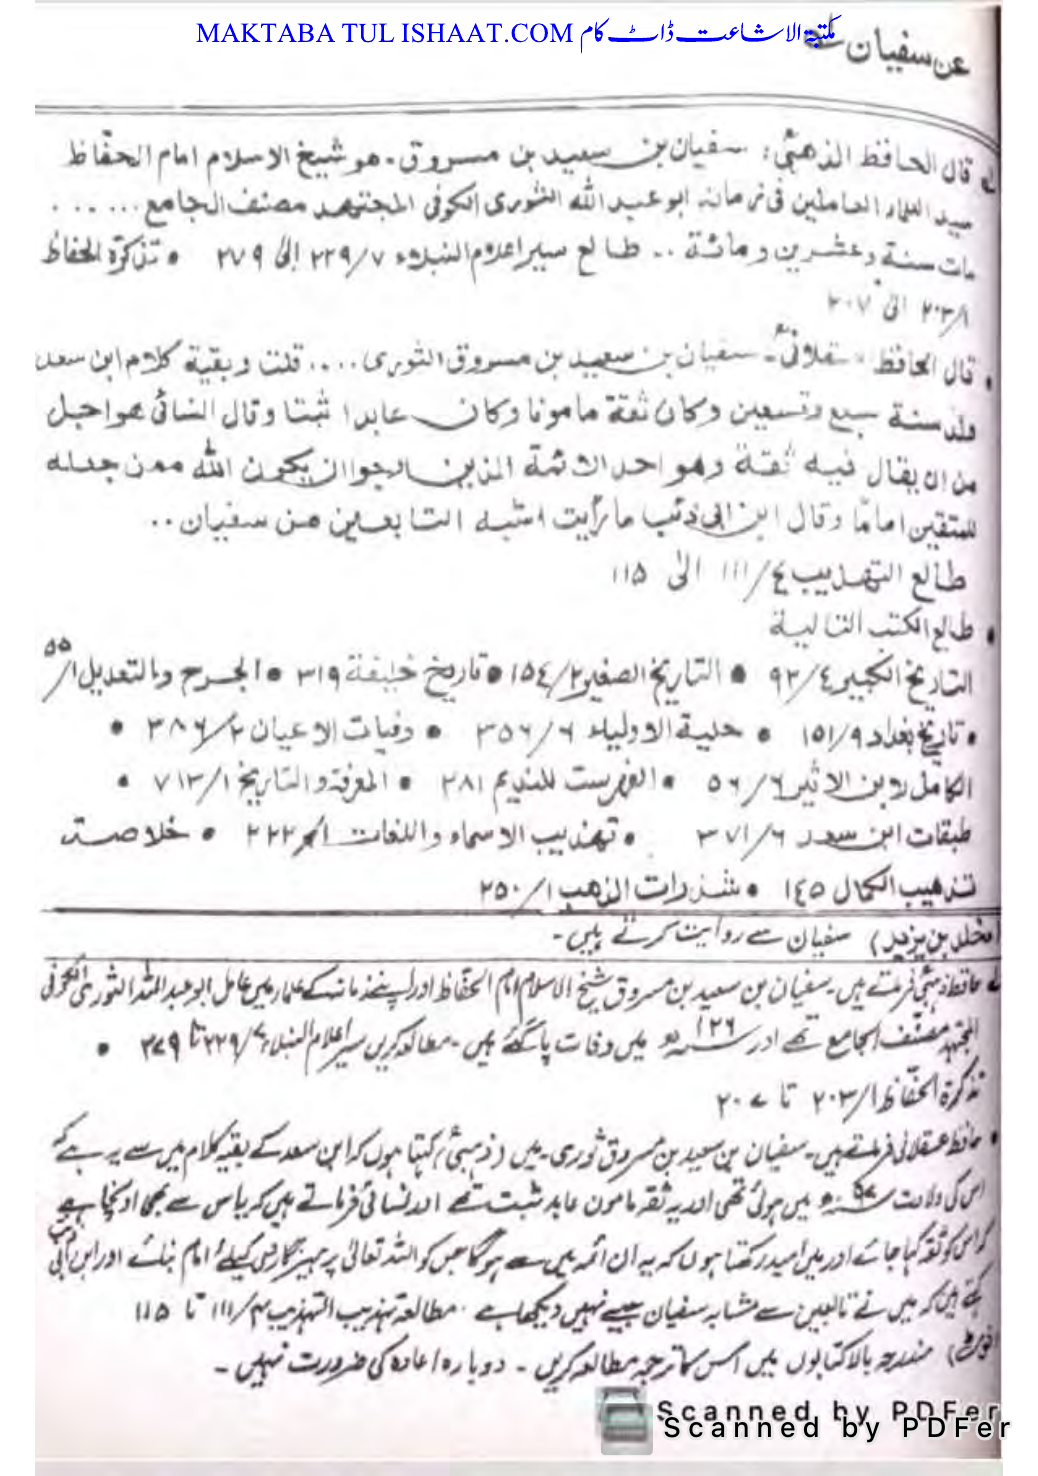 MAKTABA TUL ISHAAT.COM مکتبۃ الاشاعت ڈاٹ کام
عن سفیان
قال الحافظ الذهبیؒ: سفیان بن سعید بن مسروق۔ هو شیخ الاسلام امام الحفاظ
سید العلماء العاملین فی زمانه ابو عبد الله الثوری الکوفی المجتهد مصنف الجامع......
مات سنة وعشرین ومائة .. طالع سیر اعلام النبلاء ۲۲۹/۷ الیٰ ۲۷۹ • تذکرة الحفاظ
۲۰۳/۱ الیٰ ۲۰۷
• قال الحافظ سفیان بن سعید بن مسروق الثوری.... قلت وبقیة کلام ابن سعد
ولد سنة سبع وتسعین وکان ثقة مامونا وکان عابدا ثبتا وقال النسائی هو اجل
من ان یقال فیه ثقة وهو احد الائمة الذین ارجو ان یکون الله ممن جعله
للمتقین اماما وقال ابن ابی ذئب ما رأیت اشبه التابعین من سفیان ..
طالع التهذیب ٤/۱۱۱ الیٰ ۱۱۵
• طالع الکتب التالیة
التاریخ الکبیر ٤/۹۲ • التاریخ الصغیر ۲/۱۵٤ • تاریخ خلیفة ۳۱۹ • الجرح والتعدیل ۱/۵۵
• تاریخ بغداد ۱۵۱/۹ • حلیة الاولیاء ۳۵۶/۶ • وفیات الاعیان ۳۸۶/۲ •
الکامل لابن الاثیر ۵۶/۶ • الفهرست للندیم ۲۸۱ • المعرفة والتاریخ ۷۱۳/۱ •
طبقات ابن سعد ۳۷۱/۶ • تهذیب الاسماء واللغات ۲۲۲ • خلاصة
تذهیب الکمال ۱٤۵ • شذرات الذهب ۲۵۰/۱
مخلد بن یزید) سفیان سے روایت کرتے ہیں۔
حافظ ذہبیؒ فرماتے ہیں۔ سفیان بن سعید بن مسروق شیخ الاسلام امام الحفاظ اور اپنے زمانہ کے علماء میں عامل ابو عبد اللہ الثوری الکوفی
المجتہد مصنف الجامع تھے اور ۱۲۶ھ میں وفات پا گئے ہیں۔ مطالعہ کریں سیر اعلام النبلاء ۲۲۹/۷ تا ۲۷۹ •
تذکرة الحفاظ ۲۰۳/۱ تا ۲۰۷
• حافظ عسقلانی فرماتے ہیں۔ سفیان بن سعید بن مسروق ثوری۔ میں (ذہبیؒ) کہتا ہوں کہ ابن سعد کے بقیہ کلام میں سے یہ ہے کہ
اس کی ولادت ۹۷ھ میں ہوئی تھی اور یہ ثقہ مامون عابد ثبت تھے اور نسائی فرماتے ہیں کہ یہ اس سے بھی اونچا ہے
کہ اس کو ثقہ کہا جائے اور میں امید رکھتا ہوں کہ یہ ان ائمہ میں سے ہو گا جس کو اللہ تعالیٰ پرہیزگاروں کیلئے امام بنائے اور ابن ابی ذئب
کہتے ہیں کہ میں نے تابعین سے مشابہ سفیان جیسے نہیں دیکھا ہے۔ مطالعہ تہذیب التہذیب ۴/۱۱۱ تا ۱۱۵
(نوٹ) مندرجہ بالا کتابوں میں اس کا ترجمہ مطالعہ کریں۔ دوبارہ اعادہ کی ضرورت نہیں۔
Scanned by PDFer
Scanned by PDFer